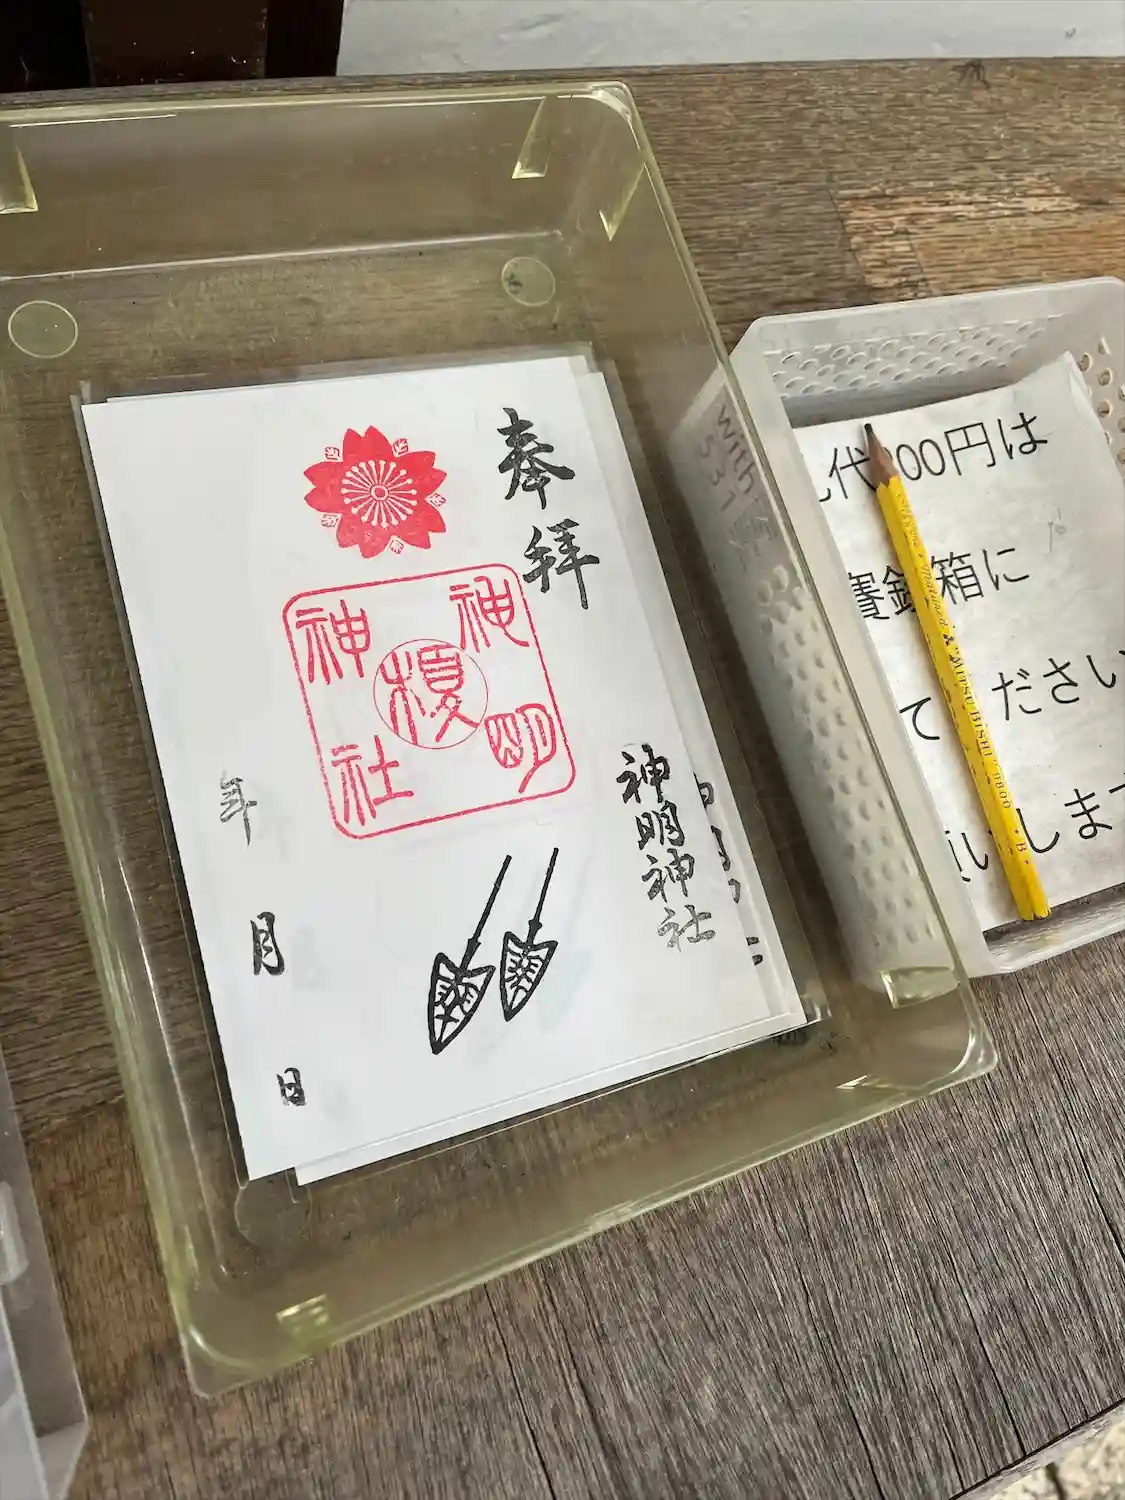 奉拝
神明
榎
神社
神明神社
年
月
日
代 00円は
賽銭箱に
て ださい
いします
MITSUBISHI 9800 B